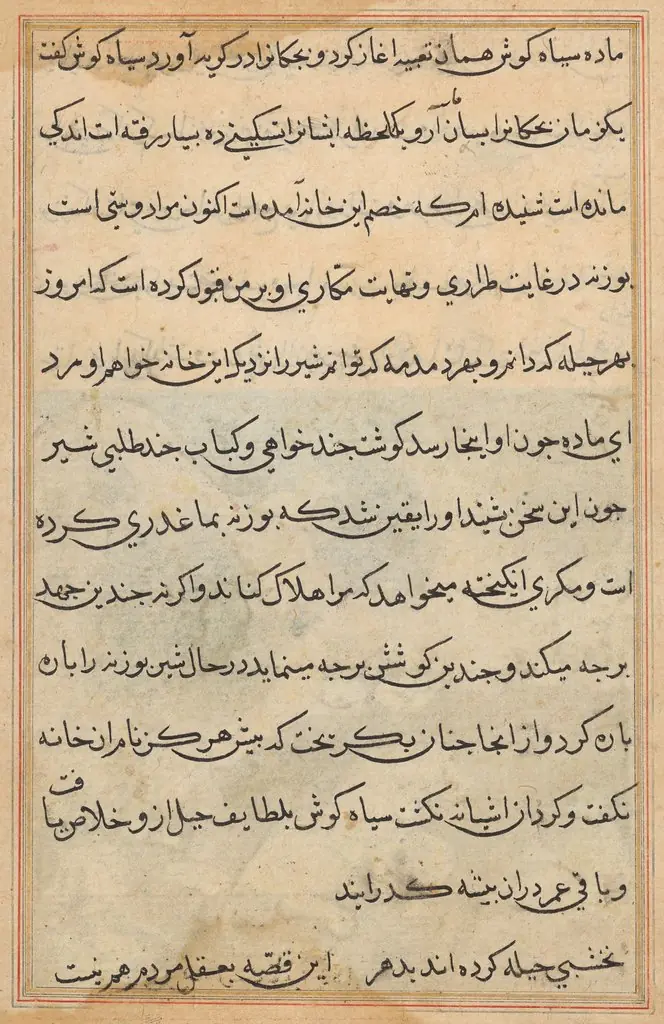 ماده سیاه کوش همان تعبیه اغاز کرد و بجکانرا در کریه آورد سیاه کوش کفت
یکزمان بجکانرا بسان آر و یکلحظه ایشانرا تسکینی ده بسیار رفته است اندکی
مانده است شنیده ام که خصم این خانه آمده است اکنون مرا دوستی است
بوزنه در غایت طراری و نهایت مکاری او بر من قبول کرده است که امروز
بهر حیله که دانم و بهر دمدمه که توانم شیر را نزدیک این خانه خواهم اورد
ای ماده جون او اینجا رسد کوشت جند خواهی و کباب جند طلبی شیر
جون این سخن شیند او را یقین شد که بوزنه بما غدری کرده
است و مکری انکیخته میخواهد که مرا هلاک کناند و اکر نه جندین جهد
بر جه میکند و جندین کوشش بر جه مینماید در حال شیر بوزنه را باره
باره کرد و از انجا جنان بکریخت که بیش هرکز نام ان خانه
نکفت و کرد ان اشیانه نکشت سیاه کوش بلطایف حیل از و خلاص یافت
و باقی عمر دران بیشه کذرایند
نخشبی حیله کرده اند بدهر این قصه بعقل مردم هم نیست